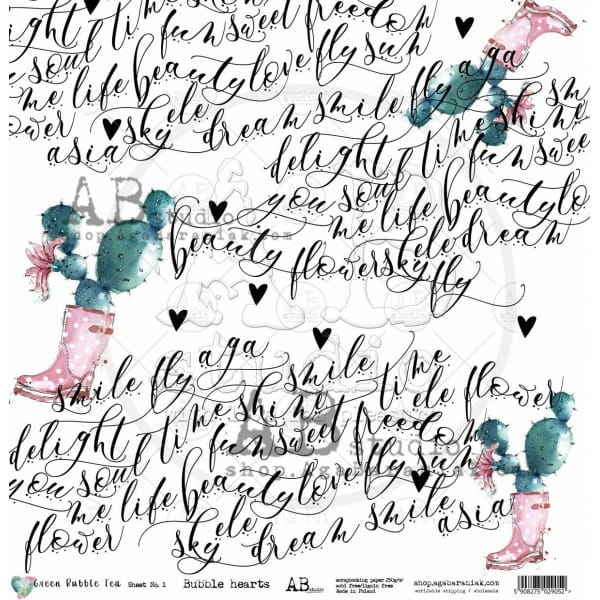 delight fl time fun sweet freedom
you soul me shine
me life beauty love fly sun
flower ele smile fly aga
asia sky dream me shine
delight fl time fun sweet
you soul
me life beauty lo
AB studio
shop.agabaraniak.com
beauty flower sky ele dream
fly
aga smile time
smile fly ele flower
delight fl time me shine freedom
fun sweet
you soul
AB studio
shop.Agabaraniak.com
me life beauty love fly sun
flower ele smile asia
sky dream
Green Bubble Tea Sheet No. 1 Bubble hearts AB studio
scrapbooking paper 250g/m²
acid free/lignin free
Made in Poland
shop.agabaraniak.com
worldwide shipping / wholesale
5 908275 029052